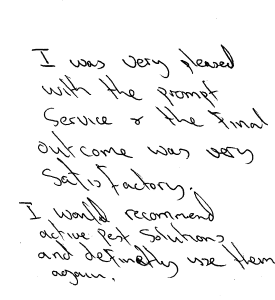 I was very pleased
with the prompt
Service & the Final
outcome was very
Satisfactory.
I would recommend
active Pest Solutions
and definetly use them
again.